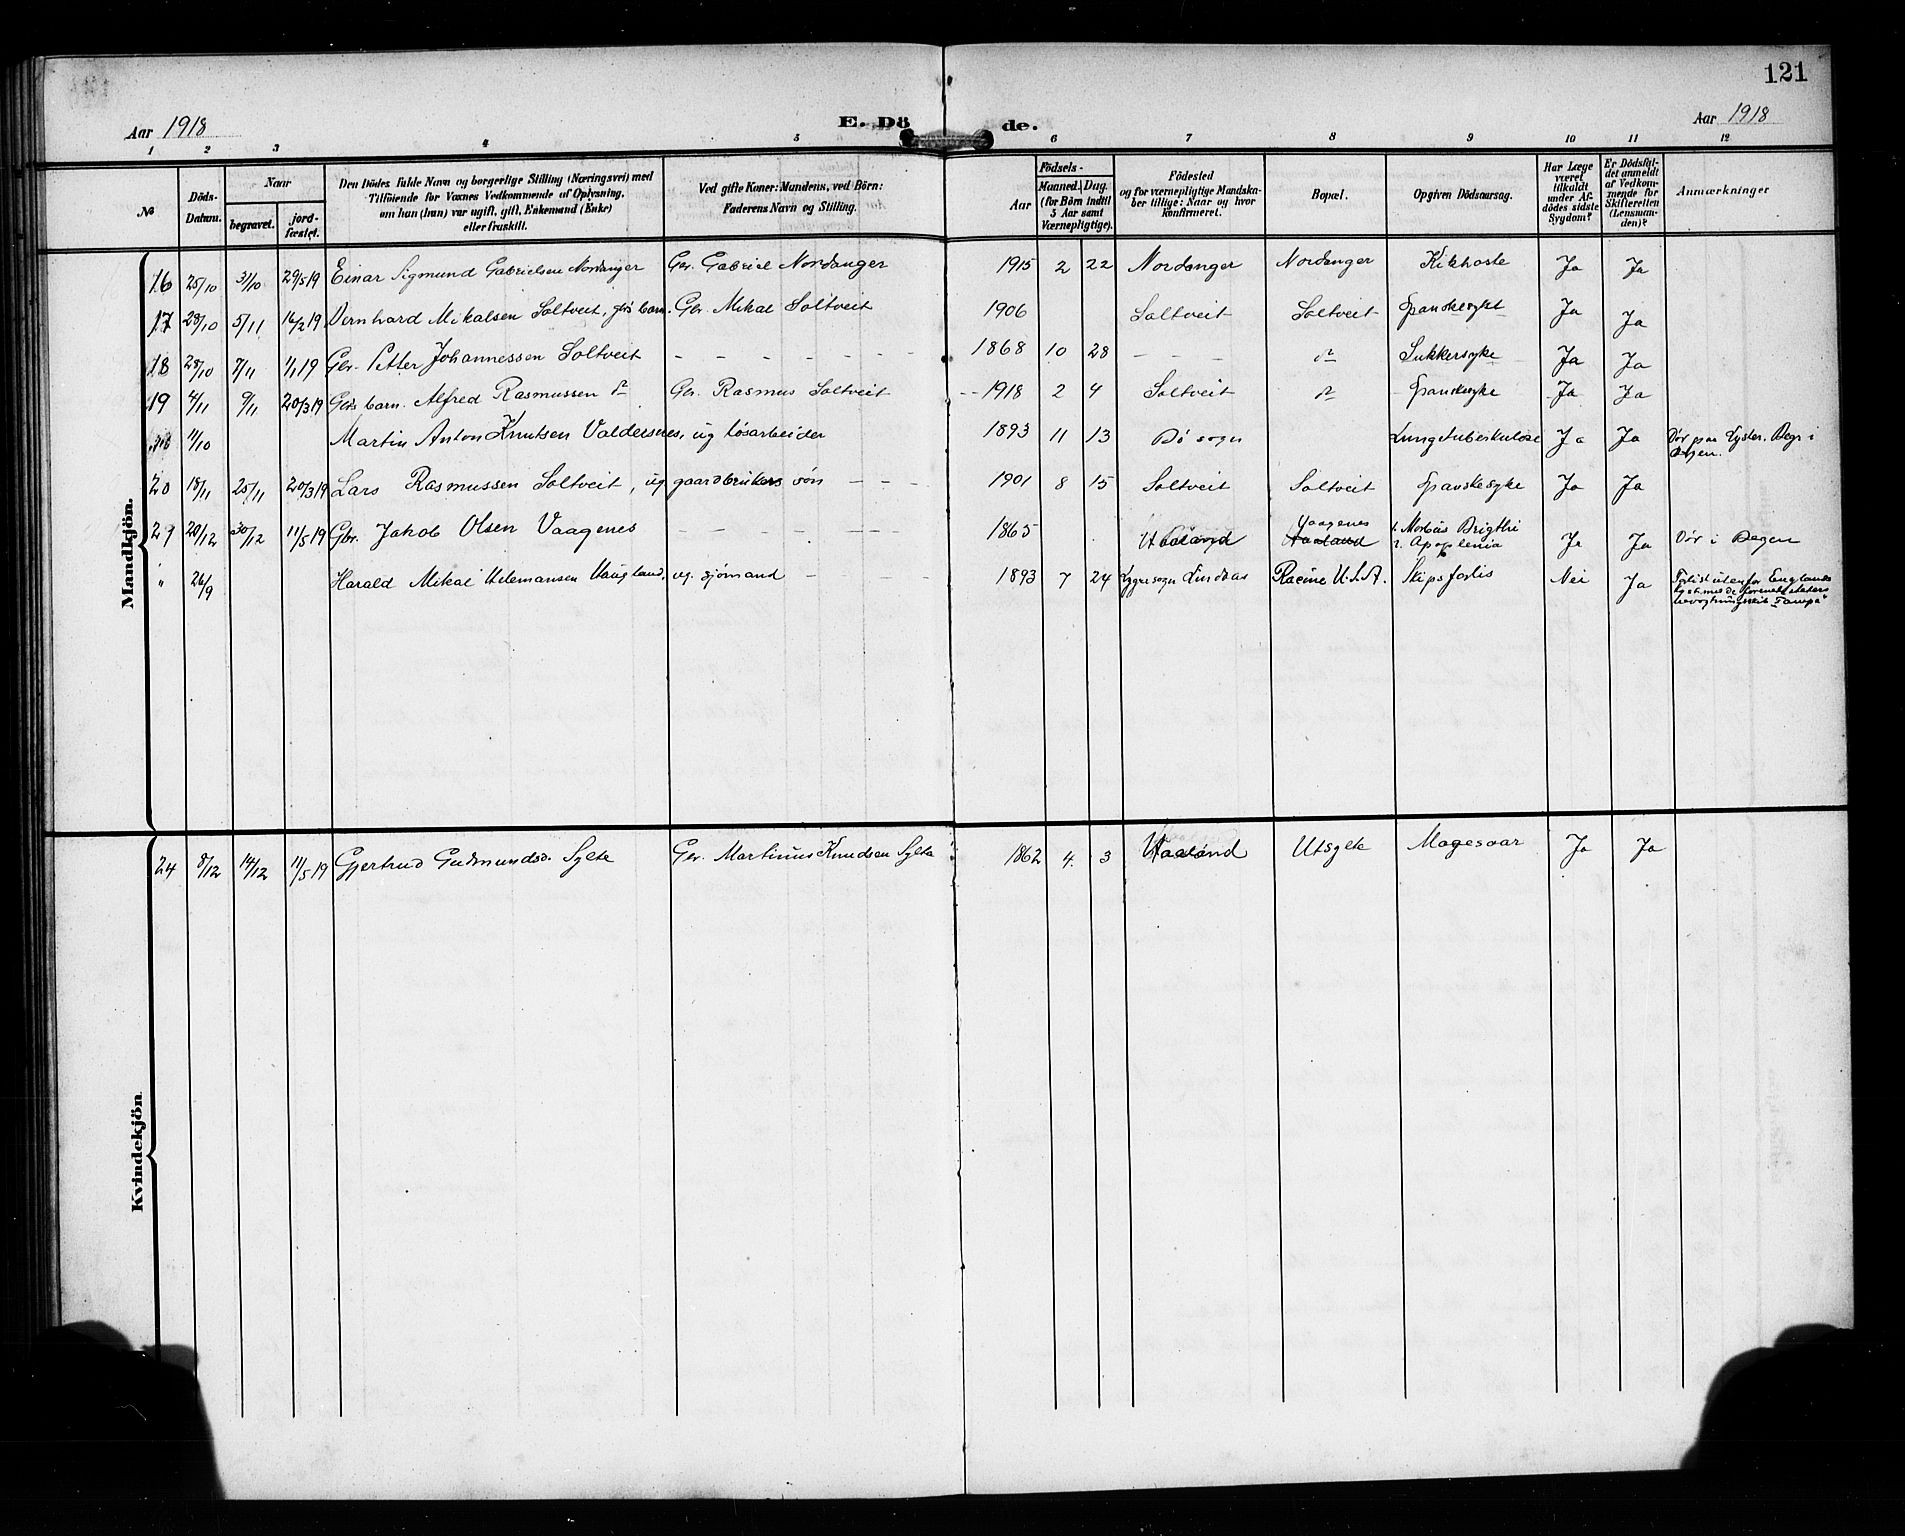 121
Aar 1918 E. Dö de. Aar 1918
1 2 3 4 5 6 7 8 9 10 11 12
№
Döds-Datum.
Naar
begravet.
jord-fæstet.
Den Dödes fulde Navn og borgerlige Stilling (Næringsvei) med
Tilföiende for Voxnes Vedkommende af Oplysning,
om han (hun) var ugift, gift, Enkemand (Enke)
eller fraskilt.
Ved gifte Koner: Mandens, ved Börn:
Faderens Navn og Stilling.
Födsels-
Aar
Maaned. Dag.
(for Börn indtil
5 Aar samt
Værnepligtige).
Födested
og for værnepligtige Mandska-
ber tillige: Naar og hvor
konfirmeret.
Bopæl.
Opgiven Dödsaarsag.
Har Læge
været
tilkaldt
under Af-
dödes sidste
Sygdom?
Er Dödsfal-
det anmeldt
af Vedkom-
mende for
Skifteretten
(Lensman-
den)?
Anmærkninger
Mandkjön.
16 25/10 31/10 29/5 19 Einar Sigmund Gabrielsen Nordanger Gbr. Gabriel Nordanger 1915 2 22 Nordanger Nordanger Kikhoste Ja Ja
17 28/10 5/11 16/2 19 Bernhard Mikalsen Soltveit, gbrs barn. Gbr. Mikal Soltveit 1906 Soltveit Soltveit Spanskesyke Ja Ja
18 28/10 7/11 1/1 19 Gbr. Petter Johannessen Soltveit - - - - - - 1868 10 28 - - - Sukkersyke Ja Ja
19 4/11 9/11 20/3 19 Gbrs barn. Alfred Rasmussen Gbr. Rasmus Soltveit -- 1918 2 4 Soltveit Spanskesyke Ja Ja
11/10 Martin Anton Knutsen Valdersnes, ug løsarbeider 1893 11 13 Bö sogn Lungetuberkulose Ja Ja Dör paa Lyster. Begr i
20 18/11 25/11 20/3 19 Lars Rasmussen Soltveit, ug gaardbrukers sön - - - 1901 8 15 Soltveit Soltveit Spanskesyke Ja Ja
21 20/12 30/12 11/5 19 Gbr. Jakob Olsen Vaagenes - - - - - 1865 Vaagenes 1. Morbus Brigthi
2. Apoplexia Ja Ja Dör i Bergen
" 26/9 Harald Mikal Haugland, ug. sjömand - - - 1893 7 24 Lygre sogn Lindaas Racine U.S.A. Skipsforlis Nei Ja Forlist utenfor Englands
kyst med de forenede staters
bevogtningsskib "Tampa"
Kvindekjön.
24 8/12 14/12 11/5 19 Gjertrud Gudmundsd. Sylte Gbr. Martinus Knudsen Sylta 1862 4. 3 Utsylte Mavesaar Ja Ja